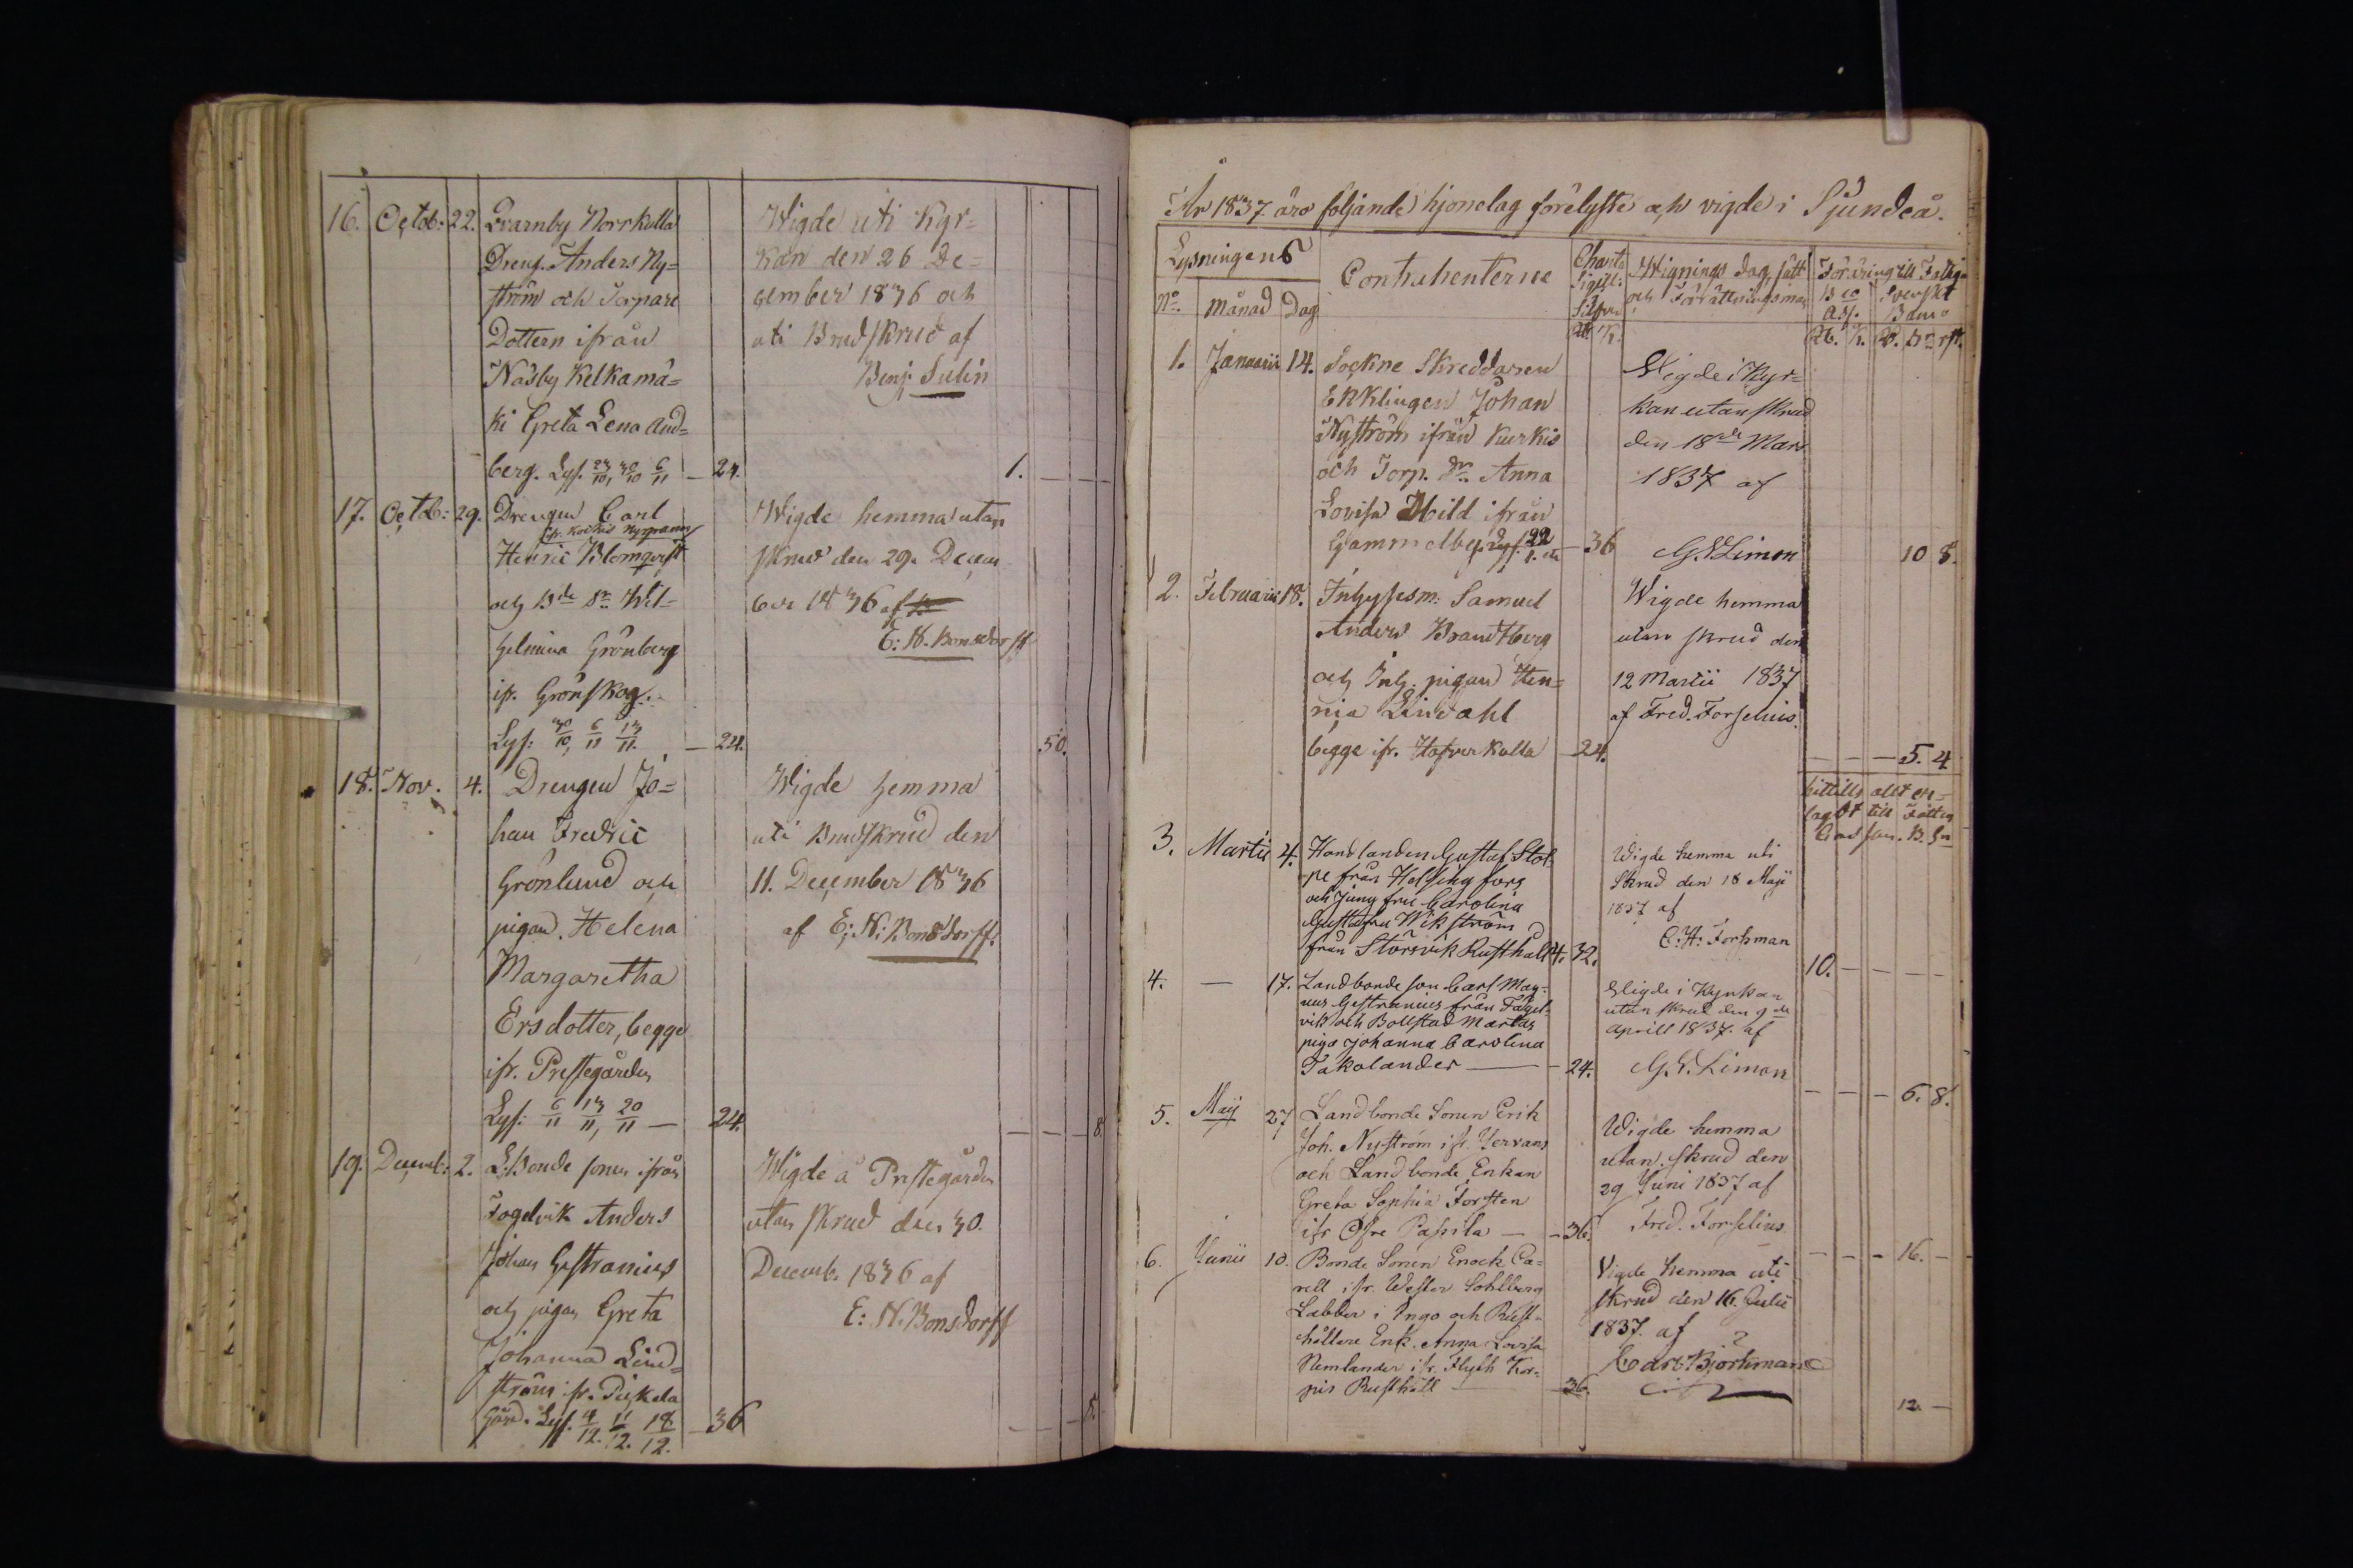 16. Octob: 22. Qvarnby Norrkulla
Dreng. Anders Ny=
ström och Torpare
Dottern ifrån
Näsby Kelkamä=
ki Greta Lena And=
berg. Lys. 23/10, 30/10 6/11 — 24.
Wigde uti Kyr=
kan den 26 De=
cember 1836 och
uti Brudskrud af
Benj. Sulin
1.
17. Octob: 29. Drengen Carl
Henric Blomqvist
och Bde dr Wil=
helmina Grönberg
ifr. Grönskog.
Lys: 30/10, 6/11 13/11. — 24.
Wigde hemma utan
skrud den 29. Decem
ber 1836 af
E: N. Bonsdorff
50.
18. Nov. 4. Drengen Jo=
han Fredric
Grönlund och
pigan Helena
Margaretha
Ersdotter, begge
ifr. Prestegården
Lys: 6/11 13/11, 20/11 — 24.
Wigde hemma
uti Brudskrud den
11. December 1836
af E: N: Bonsdorff.
8
19. Decemb: 2. L.Bonde sonen ifrån
Fogelvik Anders
Johan Gestranius
och pigan Greta
Johanna Lind=
ström ifr. Pickala
Gård. Lys. 4/12. 11/12. 18/12. — 36
Wigde å Prestegården
utan skrud den 30.
Decemb. 1836 af
E: N. Bonsdorff
År 1837 äro följande hjonelag förelyste och vigde i Sjundeå.
Lysningens
No. Månad Dag
Contrahenterne
Charta Sigill:
Silfver
Wignings dag, sätt
och Förrättningsman
Svenskt
Banco
1. Januarii 14. Sockne Skreddaren
Ekklingen Johan
Nyström ifrån Kurkis
och Torp. dr. Anna
Lovisa Mild ifrån
Gammelby. Lys. 22/1. — 36
Wigde i Kyr=
kan utan skrud
den 18de Mars
1837 af
G. V. Limon
10 8.
2. Februarii 18. Inhysesm: Samuel
Anders Brandtberg
och Inh. pigan Hen=
rica Lindahl
begge ifr. Hafverkulla — 24.
Wigde hemma
utan skrud den
12 Martii 1837
af Fred. Forselius.
— — — 5. 4
3. Martii 4. Handlanden Gustaf Stol=
pe från Helsingfors
och Jungfru Carolina
Gustafva Wikström
från Störsvik Rusthåll 4. 32.
Wigde hemma uti
Skrud den 18 Maji
1837 af
C: H: Forsman
10. — — — —
4. — 17. Landbonde son Carl Mag=
nus Gestranius från Fågel=
vik och Bollstad Mårtas
piga Johanna Carolina
Takolander — 24.
Wigde i Kyrkan
utan skrud den 9de
Aprill 1837. af
G. V. Limon
— — — 6. 8.
5. Maij 27 Landbonde Sonen Erik
Joh. Nyström ifr Jervans
och Landbonde Enkan
Greta Sophia Forsten
ifr Öfre Passila — 36.
Wigde hemma
utan skrud den
29 Juni 1837 af
Fred. Forselius
— — — 16. —
6. Junii 10. Bonde Sonen Enock Ca=
rell ifr. Wester Sohlberg
Labbas i Ingo och Rust=
hållare Enk. Anna Lovisa
Nemlander ifr. Flyth Kor=
pis Rusthåll — 36.
Vigde hemma uti
skrud den 16. Julii
1837. af
Carl Björkman
12. —